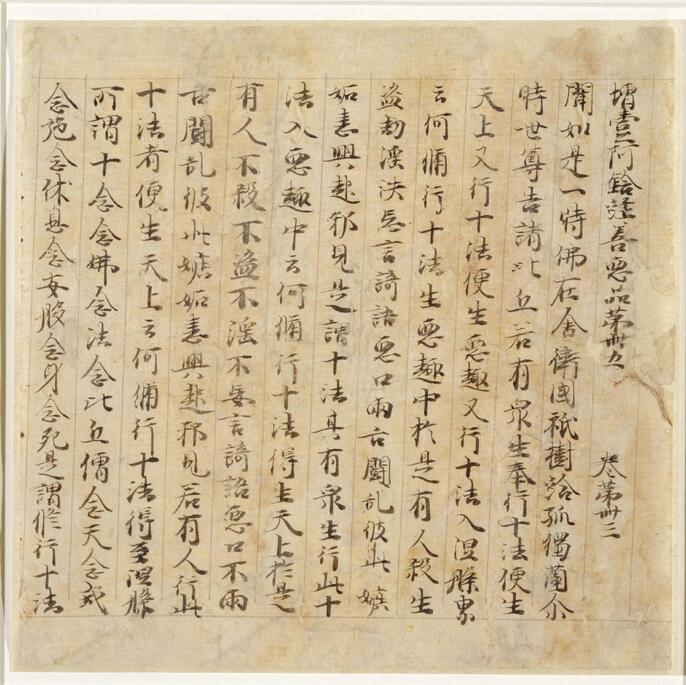 增壹阿鋡經善惡品第卌九 卷第卌三
聞如是一時佛在舍衛國祇樹給孤獨薗尒
時世尊告諸比丘若有衆生奉行十法便生
天上又行十法便生惡趣又行十法入涅槃界
云何脩行十法生惡趣中於是有人殺生
盜劫淫泆妄言綺語惡口兩舌鬪乱彼此嫉
妬恚興起邪見是謂十法其有衆生行此十
法入惡趣中云何脩行十法得生天上於是
有人不殺不盜不淫不妄言綺語惡口不兩
舌鬪乱彼此嫉妬恚興起邪見若有人行此
十法者便生天上云何脩行十法得至涅槃
所謂十念念佛念法念比丘僧念天念戒
念施念休息念安般念身念死是謂脩行十法